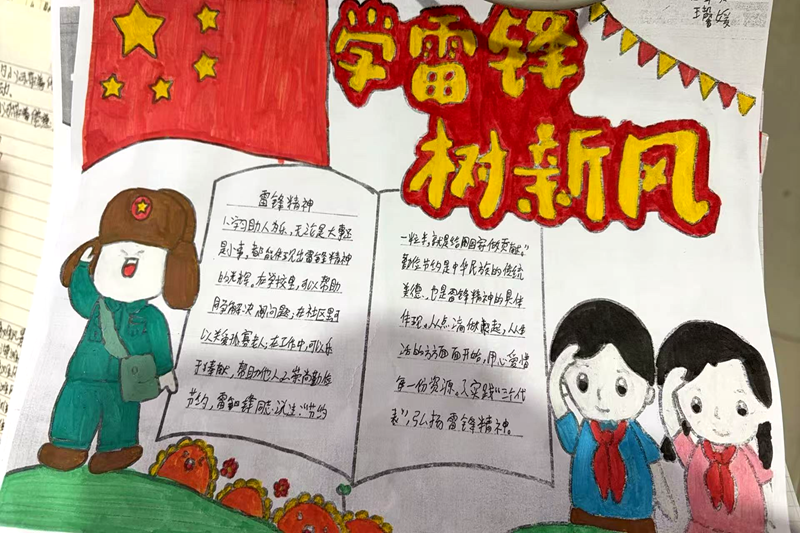 学雷锋
树新风
雷锋精神
1、学习助人为乐,无论是大事还
是小事,都能体现出雷锋精神
的光辉。在学校里,可以帮助
同学解决问题;在社区里可
以关爱孤寡老人;在工作中,可以乐
于奉献,帮助他人
节约,雷锋同志说过:"节约
一粒米,就是给国家做贡献。"
勤俭节约是中华民族的传统
美德,也是雷锋精神的具体
体现。从点滴做起,从生
活的方方面面开始,用心爱惜
每一份资源。
表",弘扬雷锋精神。